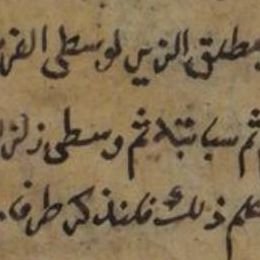 مطلق الزير لوسطى الفر
ثم سبابته ثم وسطى زلزل
علم ذلك فلنذكر طرفا